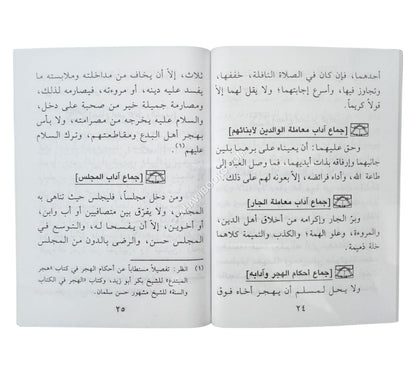 أحدهما، فإن كان في الصلاة النافلة، خففها،
وتجاوز فيها، وأسرع إجابتهما؛ ولا يقل لهما إلا
قولاً كريماً.
[جماع آداب معاملة الوالدين لأبنائهم]
وحق عليهما: أن يعيناه على برهما بلين
جانبهما وإرفاقه بذات أيديهما، فما وصل العباد إلى
طاعة الله، وأداء فرائضه، إلا بعونه لهم على ذلك.
[جماع آداب معاملة الجار]
وبرّ الجار وإكرامه من أخلاق أهل الدين،
والمروءة، وعلو الهمة؛ والكذب والنميمة كلاهما
خلة ذميمة.
[جماع أحكام الهجر وآدابه]
ولا يحل لمسلم أن يهجر أخاه فوق
٢٤
ثلاث، إلا أن يخاف من مداخلته وملابسته ما
يفسد عليه دينه، أو مروءته، فيصارمه لذلك،
ومصارمة جميلة خير من صحبة على دخل،
والسلام عليه يخرجه من مصرامته، ولا بأس
بهجر أهل البدع ومقاطعتهم، وترك السلام
عليهم(١).
[جماع آداب المجلس]
ومن دخل مجلساً، فليجلس حيث تناهى به
المجلس، ولا يفرّق بين متصافيين أو أب وابن،
أو أخوين، إلا أن يفسحا له، والتوسع في
المجلس حسن، والرضى بالدون من المجلس
(١) انظر: تفصيلاً مستطاباً عن أحكام الهجر في كتاب «هجر
المبتدع» للشيخ بكر أبو زيد، وكتاب «الهجر في الكتاب
والسنة» للشيخ مشهور حسن سلمان.
٢٥